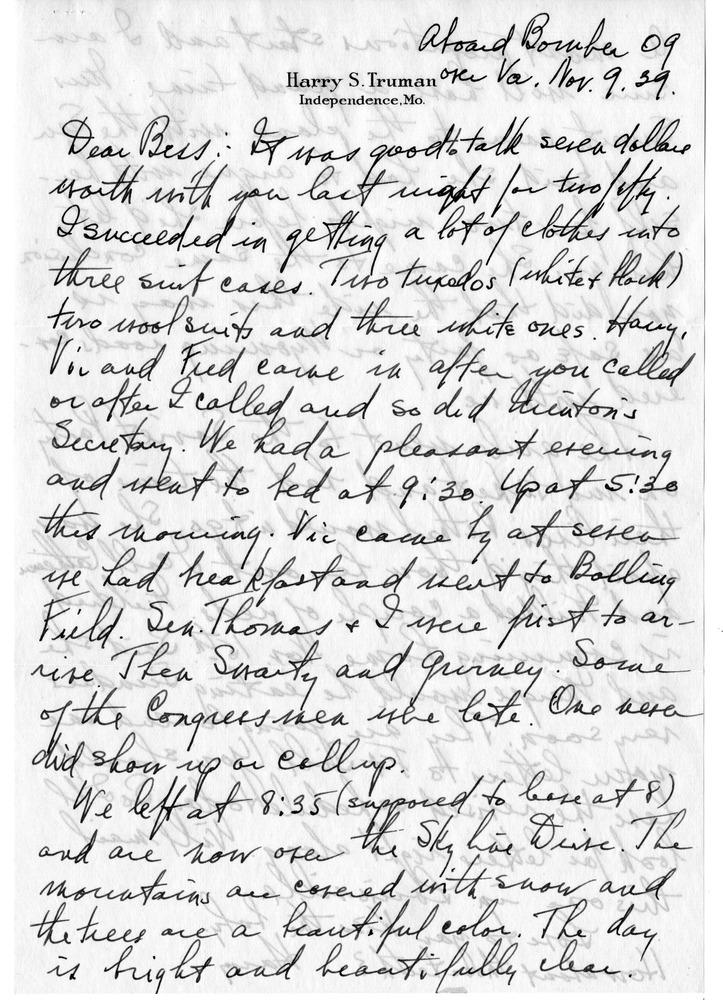 Aboard Bomber 09
over Va. Nov. 9, 39.
Harry S. Truman
Independence, Mo.
Dear Bess:- It was good to talk seven dollars
worth with you last night for two fifty.
I succeeded in getting a lot of clothes into
three suit cases. Two tuxedos (white & black)
two wool suits and three white ones. Harry,
Vic and Fred came in after you called
or after I called and so did Minton's
Secretary. We had a pleasant evening
and went to bed at 9:30. Up at 5:30
this morning. Vic came by at seven
we had breakfast and went to Bolling
Field. Sen. Thomas & I were first to ar-
rive. Then Swarty and Gurney. Some
of the Congressmen were late. One never
did show up or call up.
We left at 8:35 (supposed to leave at 8)
and are now over the Sky line Drive. The
mountains are covered with snow and
the trees are a beautiful color. The day
is bright and beautifully clear.